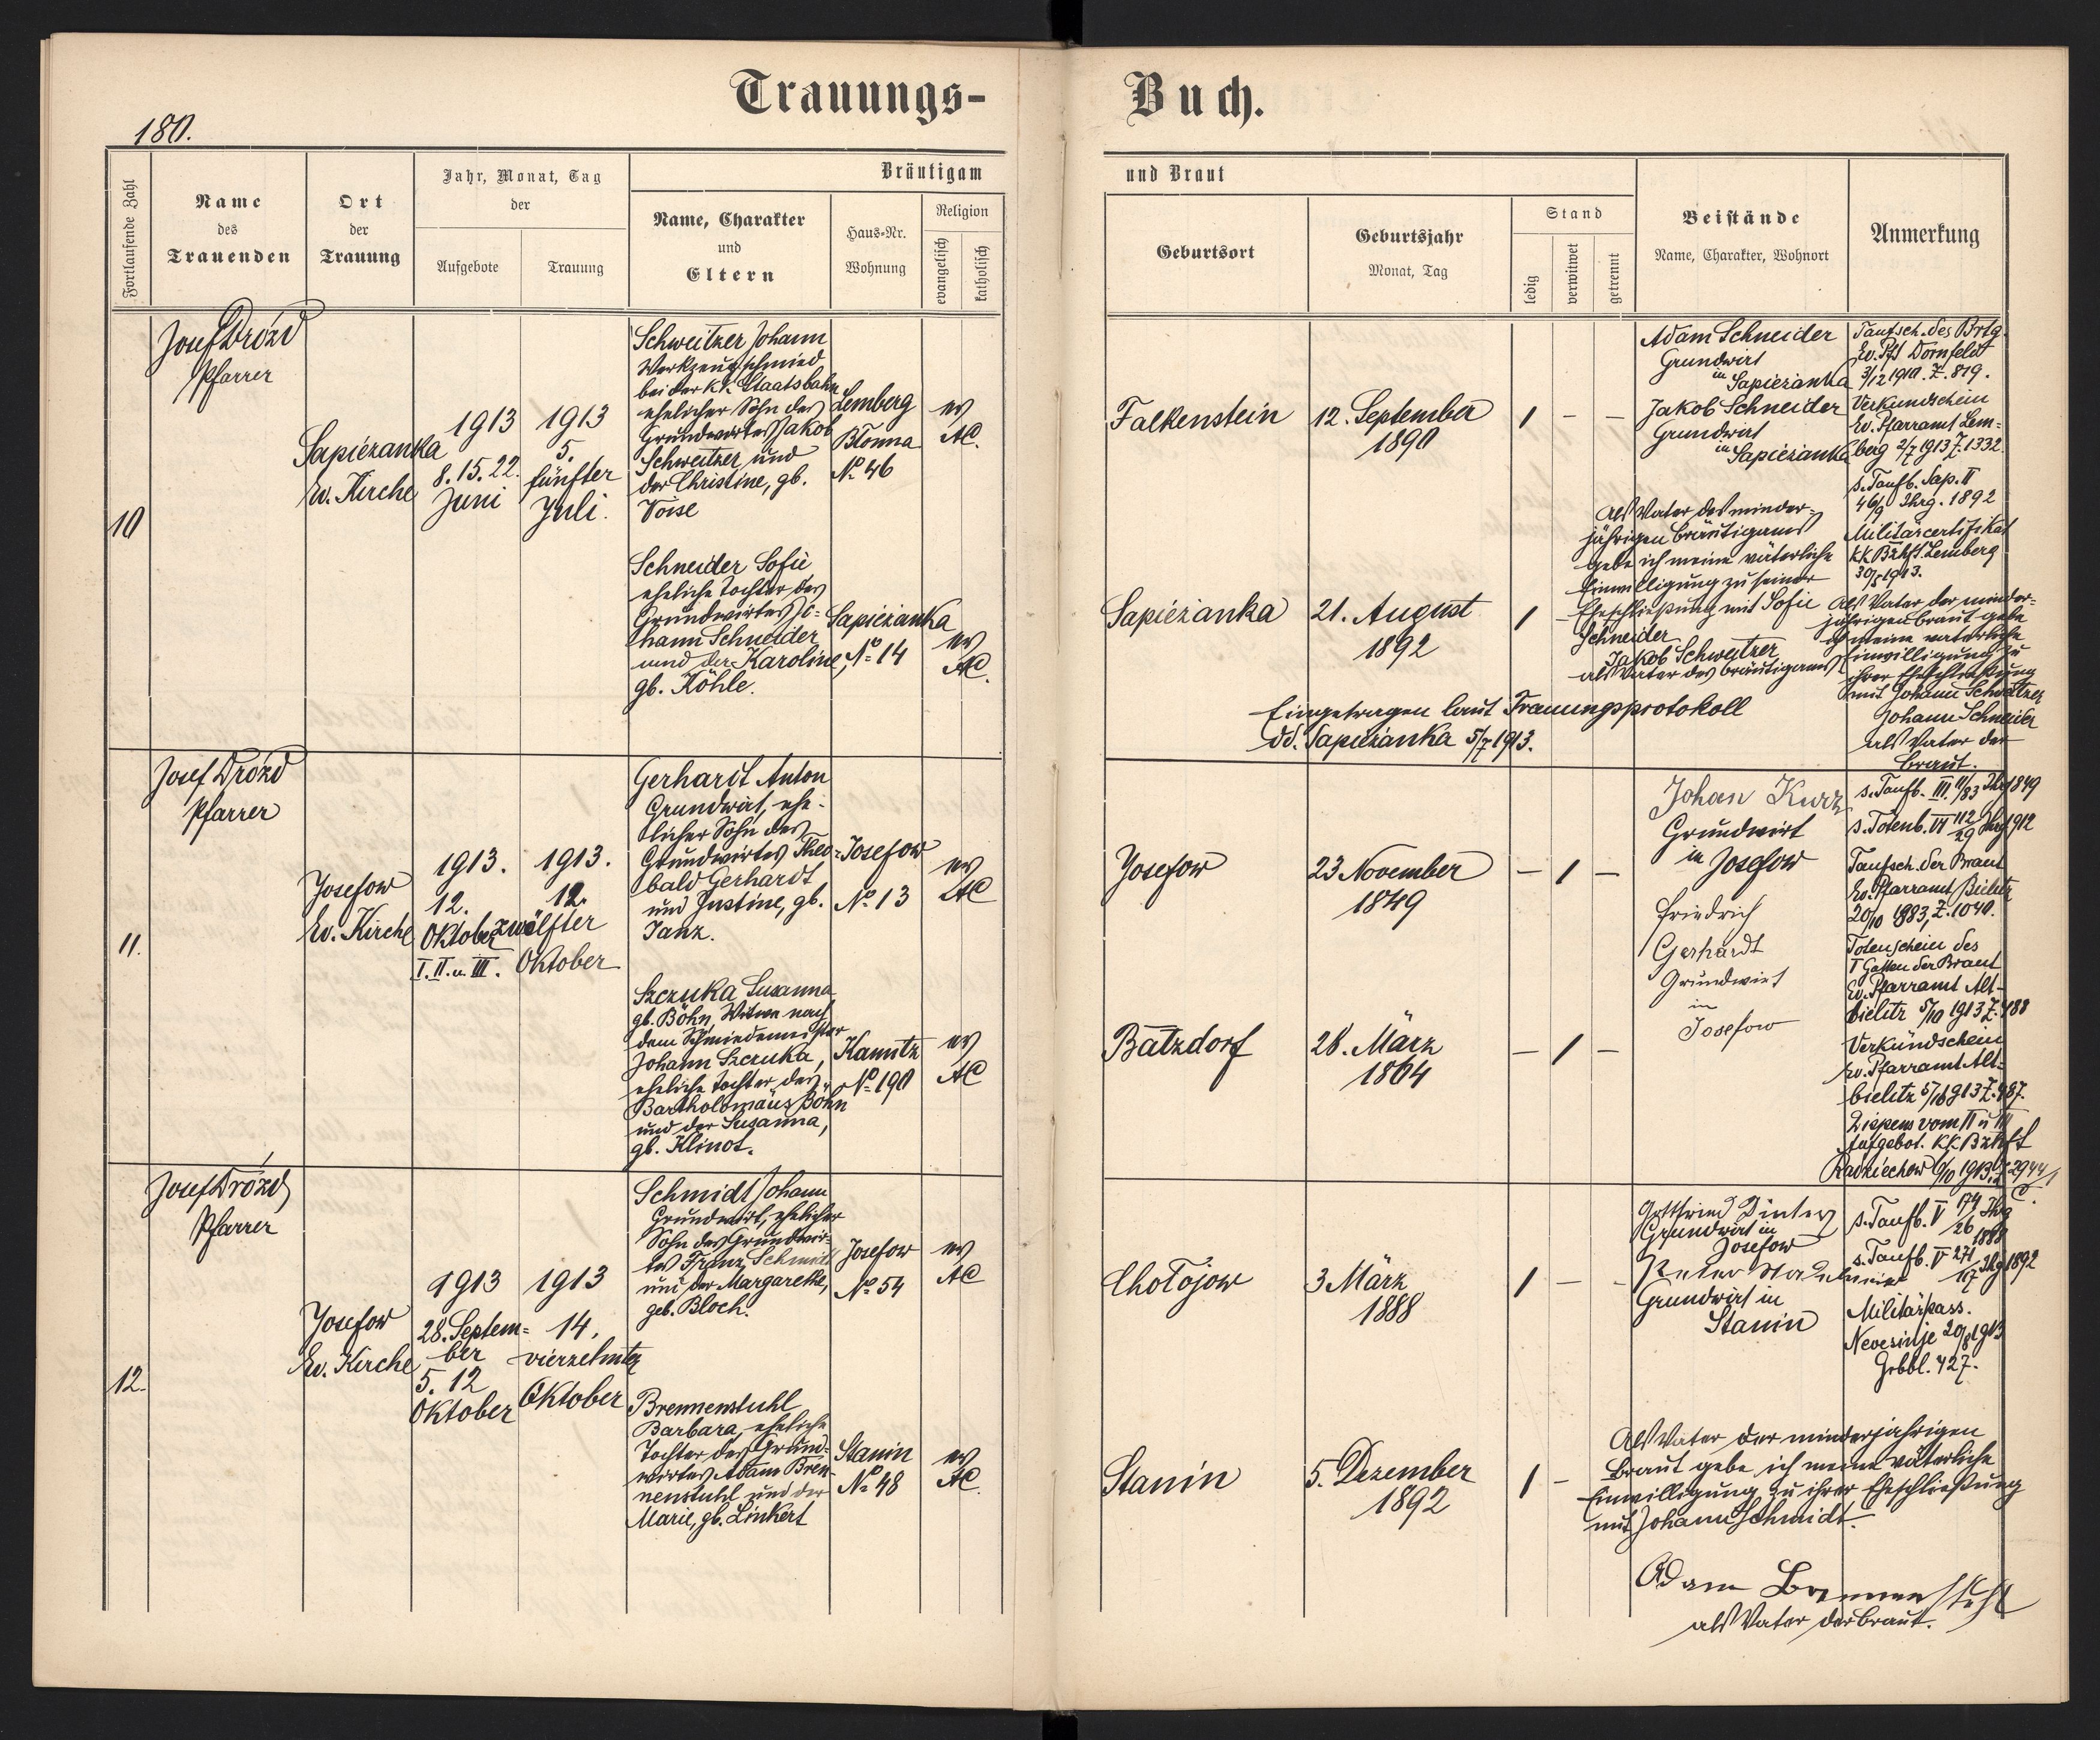 Trauungs-
Buch.
180.
Fortlaufende Zahl
Name
des
Trauenden
Ort
der
Trauung
Jahr, Monat, Tag
der
Aufgebote
Trauung
Bräutigam
Name, Charakter
und
Eltern
Haus-Nr.
Wohnung
Religion
evangelisch
katholisch
und Braut
Geburtsort
Geburtsjahr
Monat, Tag
Stand
ledig
verwitwet
getrennt
Beistände
Name, Charakter, Wohnort
Anmerkung
10
Josef Drózd
Pfarrer
Sapiezanka
Ev. Kirche
1913
8. 15. 22.
Juni
1913
5.
fünfter
Juli.
Schweitzer Johann
Werkzeugschmied
bei der k.k. Staatsbahn
ehelicher Sohn des
Grundwirtes Jakob
Schweitzer und
der Christine, gb.
Voise
Lemberg
Błonna
No 46
ev
AC.
Falkenstein
12. September
1890
1 – –
Schneider Sofie
eheliche Tochter des
Grundwirtes Jo-
hann Schneider
und der Karoline,
gb. Köhle.
Sapiezanka
No 14
ev
AC.
Sapiezanka
21. August
1892
1 –
Adam Schneider
Grundwirt
in Sapiezanka
Jakob Schneider
Grundwirt
in Sapiezanka
Als Vater des minder-
jährigen Bräutigams
gebe ich meine väterliche
Einwilligung zu seiner
Eheschließung mit Sofie
Schneider
Jakob Schweitzer
als Vater des Bräutigams
Taufsch. des Brtg.
Ev. Pfs Dornfeld
3/12 1910. Z. 819.
Verkundschein
Ev. Pfarramt Lem-
berg 2/7 1913 Z. 1332.
s. Taufb. Sap. II
46/9 Jhrg. 1892
Militärcertifikat
kk Bzkft. Lemberg
1913.
Als Vater der minder-
jährigen Braut gebe
ich meine väterliche
Einwilligung zu
ihrer Eheschließung
mit Johann Schweitzer
Johann Schneider
als Vater der
Braut.
Eingetragen laut Trauungsprotokoll
dd. Sapiezanka 5/7 1913.
11.
Josef Drózd
Pfarrer
Josefow
Ev. Kirche
1913.
12.
Oktober
I. II. u. III.
1913.
12.
zwölfter
Oktober
Gerhardt Anton
Grundwirt, ehe-
licher Sohn des
Grundwirtes Theo-
bald Gerhardt
und Justine, gb.
Janz.
Josefow
No 13
ev
AC
Josefow
23 November
1849
– 1 –
Szczuka Susanna
gb. Böhn, Witwe nach
dem Schmiedemeister
Johann Szczuka,
eheliche Tochter des
Bartholomäus Böhn
und der Susanna,
gb. Klinot.
Kamitz
No 190
ev
AC
Batzdorf
28. März
1864
– 1 –
Johan Kurz
Grundwirt
in Josefow
Friedrich
Gerhardt
Grundwirt
in
Josefow
s. Taufb. III. 11/83 Jhrg 1849
s. Totenb. VI 112/29 Jhrg 1912
Taufsch. der Braut
Ev. Pfarramt Bielitz
20/10 1883, Z. 1040.
Totenschein des
I Gatten der Braut
Ev. Pfarramt Alt-
bielitz 5/10 1913 Z. 488
Verkündschein
Ev. Pfarramt Alt-
bielitz 5/10 1913 Z. 487.
Dispens vom II u III
Aufgebot. kk. Bzkft
Radziechow 6/10 1913. Z. 2944/1
12.
Josef Drózd
Pfarrer
Josefow
Ev. Kirche
1913
28. Septem-
ber
5. 12
Oktober
1913
14.
vierzehnter
Oktober
Schmidt Johann
Grundwirt, ehelicher
Sohn des Grundwir-
tes Franz Schmidt
und der Margarethe,
geb. Bloch.
Josefow
No 54
ev
AC
Chołojow
3 März
1888
1 – –
Brennenstuhl
Barbara, eheliche
Tochter des Grund-
wirtes Adam Bren-
nenstuhl und der
Marie, gb. Linkert
Stanin
No 48
ev
AC.
Stanin
5. Dezember
1892
1 –
Gottfried Dinter
Grundwirt in
Josefow
Peter
Grundwirt in
Stanin
s. Taufb. V 174/26 Jhrg
1888
s. Taufb. V 271/17 Jhrg 1892
Militärpass.
Nevesinje 20/8 1913
Grbbl. 427.
Als Vater der minderjährigen
Braut gebe ich meine väterliche
Einwilligung zu ihrer Eheschließung
mit Johann Schmidt.
Adam Brennenstuhl
als Vater der Braut.